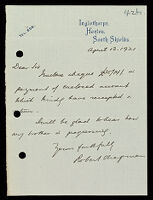 Inglethorpe,
Harton,
South Shields
April 13. 1921
Dear Sir
Enclose cheque in
payment of enclosed account
which kindly have receipted &
return.
Shall be glad to hear how
my brother is progressing.
Yours faithfully
Robert Chapman